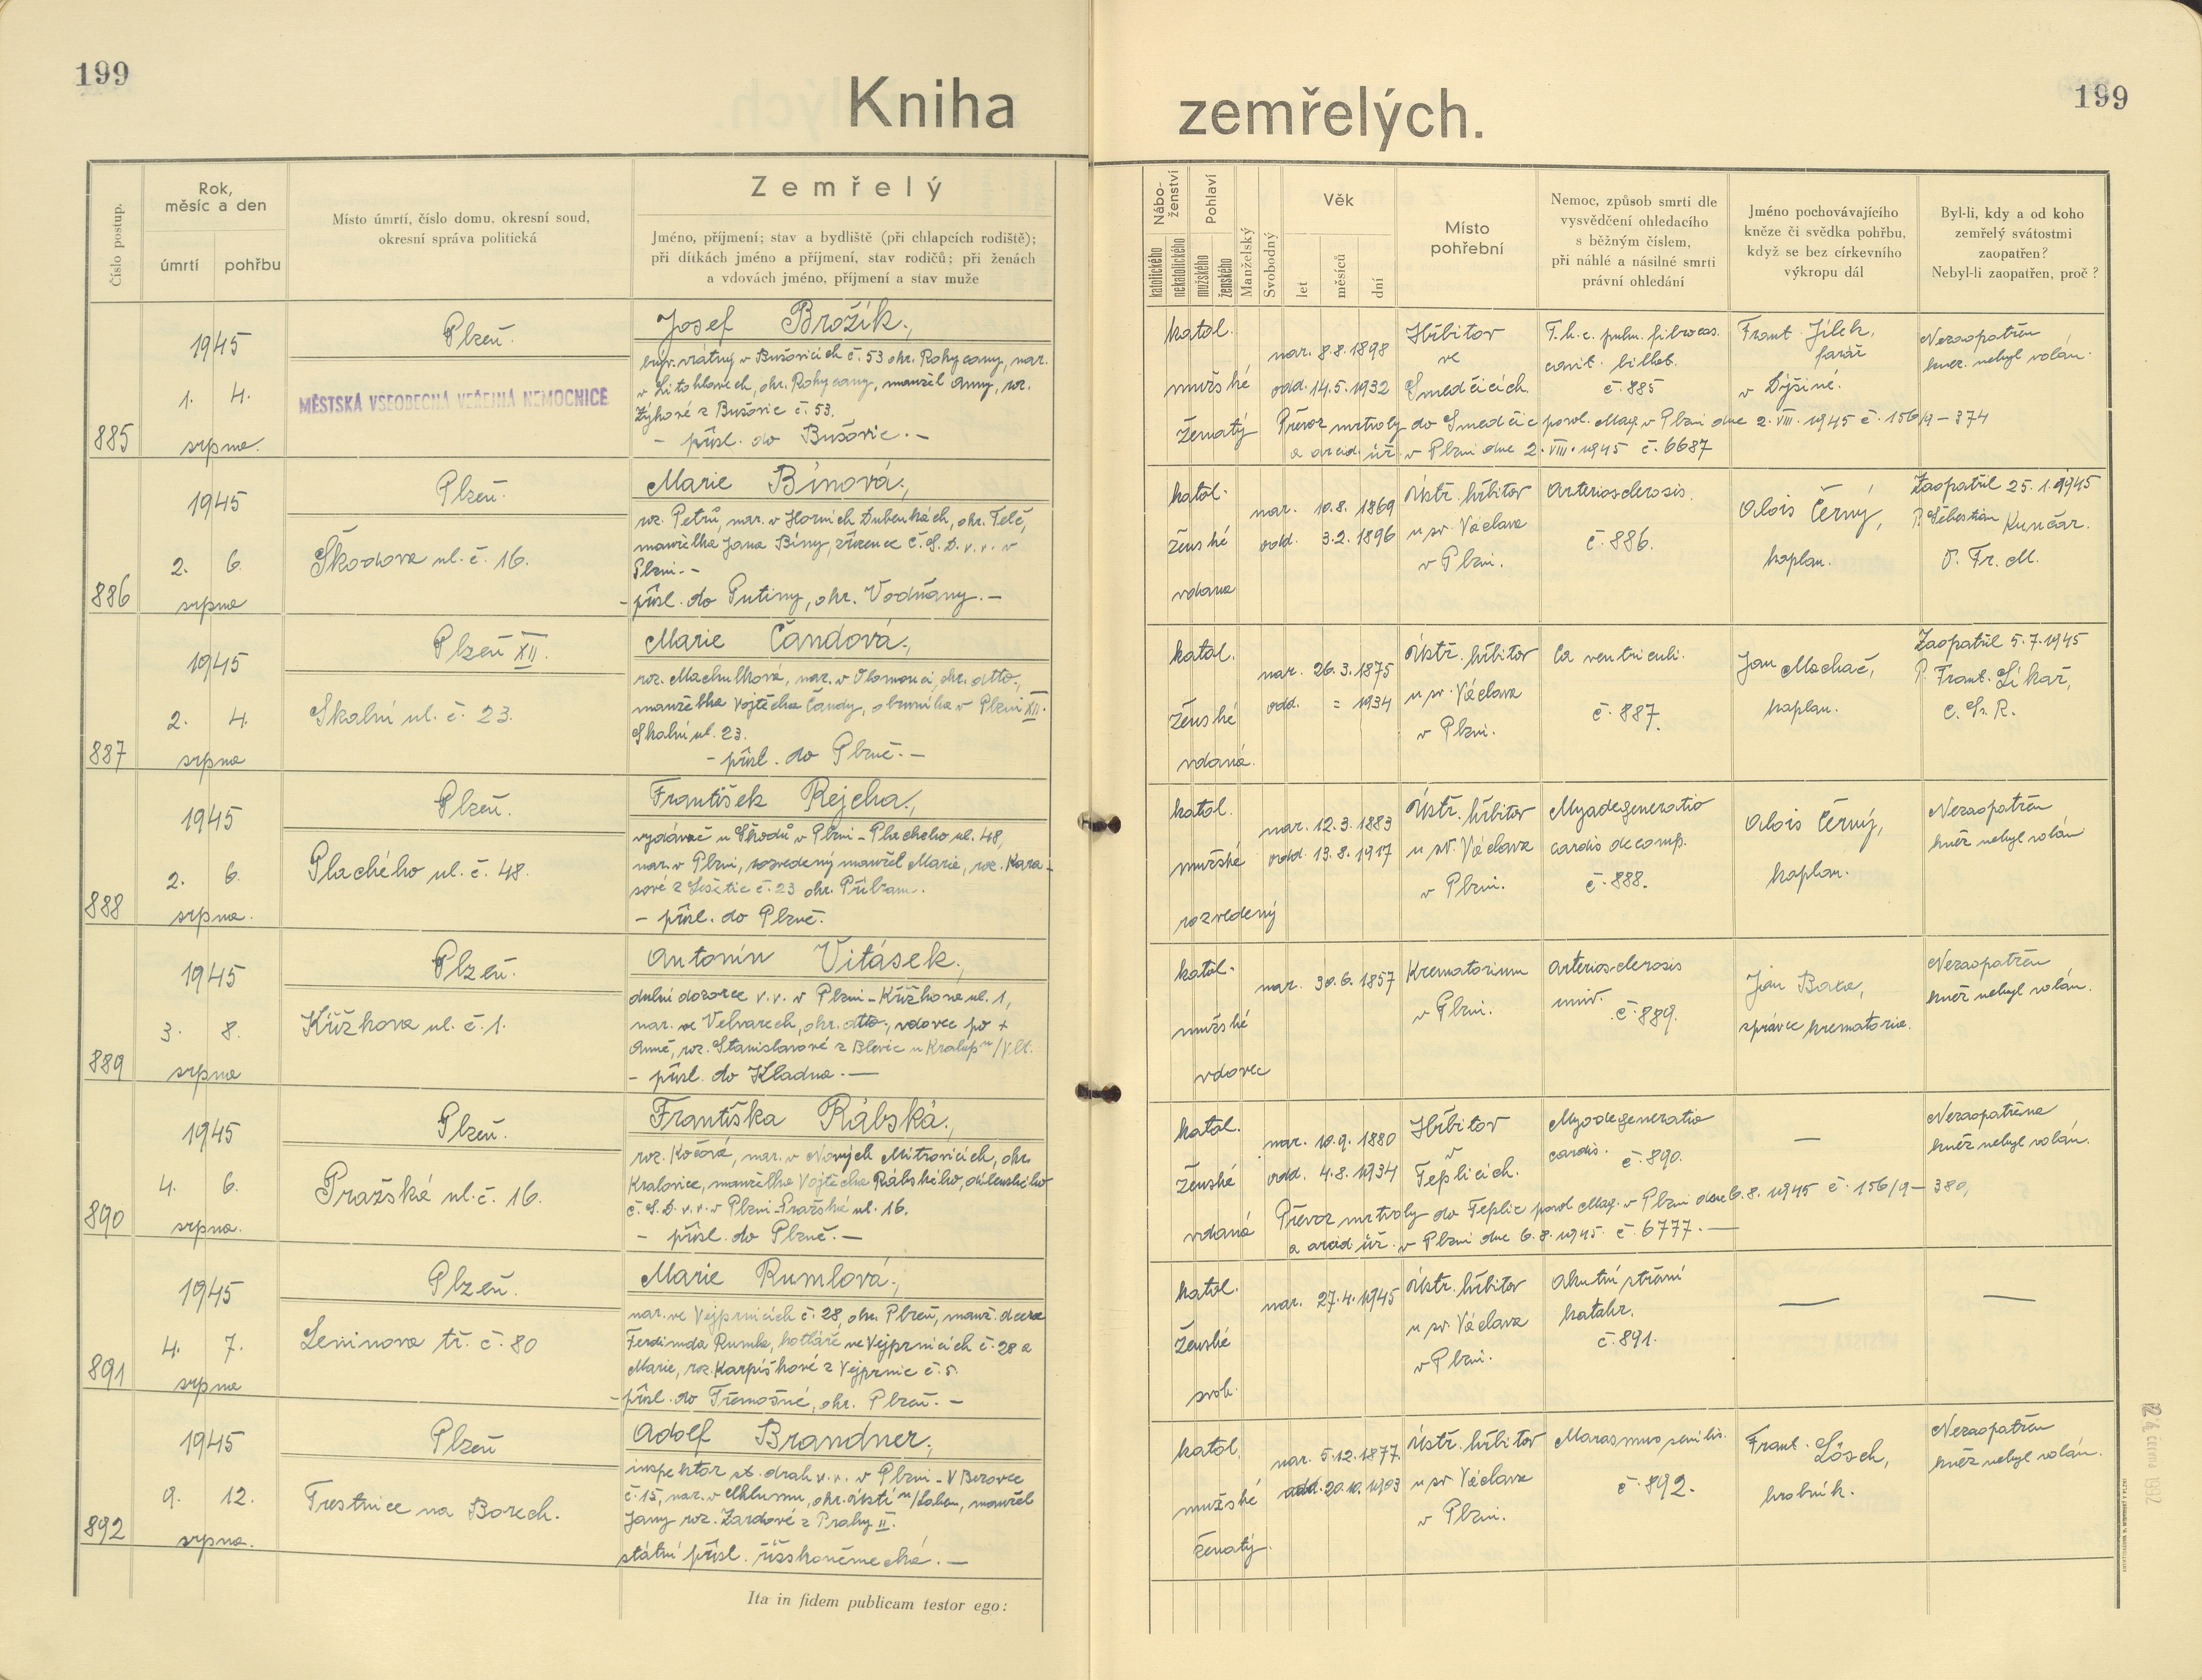 199
199
Kniha zemřelých.
Číslo postup.
Rok,
měsíc a den
úmrtí
pohřbu
Místo úmrtí, číslo domu, okresní soud,
okresní správa politická
Zemřelý
Jméno, příjmení; stav a bydliště (při chlapcích rodiště);
při dítkách jméno a příjmení, stav rodičů; při ženách
a vdovách jméno, příjmení a stav muže
Nábo-
ženství
katolického
nekatolického
Pohlaví
mužského
ženského
Manželský
Svobodný
Věk
let
měsíců
dní
Místo
pohřební
Nemoc, způsob smrti dle
vysvědčení ohledacího
s běžným číslem,
při náhlé a násilné smrti
právní ohledání
Jméno pochovávajícího
kněze či svědka pohřbu,
když se bez církevního
výkropu dál
Byl-li, kdy a od koho
zemřelý svátostmi
zaopatřen?
Nebyl-li zaopatřen, proč?
885
1945
1. 4.
srpna.
Plzeň.
MĚSTSKÁ VŠEOBECNÁ VEŘEJNÁ NEMOCNICE
Josef Brožík,
vrátný v Bušovicích č. 53 okr. Rokycany, nar.
v Litohlavech, okr. Rokycany, manžel Anny, roz.
Zýkové z Bušovic č. 53.
– přísl. do Bušovic. –
katol.
mužské
ženatý
nar. 8.8.1898
odd. 14.5.1932
Hřbitov
ve
Smedčicích.
T.b.c. pulm. fibrocas.
cavit. bilat.
č. 885
Frant. Jílek,
farář
v Dýšiné.
Nezaopatřen
kněz nebyl volán.
Převoz mrtvoly do Smedčic povol. Mag. v Plzni dne 2. VIII. 1945 č. 156/9 – 374
a arcid. úř. v Plzni dne 2. VIII. 1945 č. 6687
886
1945
2. 6.
srpna
Plzeň.
Škodova ul. č. 16.
Marie Bínová,
roz. Petrů, nar. v Horních Dubenkách, okr. Telč,
manželka Jana Bíny, zřízence Č.S.D. v.v. v
Plzni. –
– přísl. do Putimy, okr. Vodňany. –
katol.
ženské
vdaná
nar. 10.8.1869
odd. 3.2.1896
Ústř. hřbitov
u sv. Václava
v Plzni.
Arteriosclerosis.
č. 886.
Alois Černý,
kaplan.
Zaopatřil 25.1.1945
P. Šebestián Kunčar.
O. Fr. M.
887
1945
2. 4.
srpna
Plzeň XII.
Skalní ul. č. 23.
Marie Čandová,
roz. Machulková, nar. v Olomouci, okr. dtto,
manželka Vojtěcha Čandy, obuvníka v Plzni XII.
Skalní ul. 23.
– přísl. do Plzně. –
katol.
ženské
vdaná.
nar. 26.3.1875
odd. = 1934
Ústř. hřbitov
u sv. Václava
v Plzni.
Ca ventriculi.
č. 887.
Jan Machač,
kaplan.
Zaopatřil 5.7.1945
P. Frant. Líkař,
C. Ss. R.
888
1945
2. 6.
srpna.
Plzeň.
Plachého ul. č. 48.
František Rejcha,
vydávač u Škodů v Plzni – Plachého ul. 48,
nar. v Plzni, rozvedený manžel Marie, roz. Kara-
sové z Lešetic č. 23 okr. Příbram.
– přísl. do Plzně.
katol.
mužské
rozvedený
nar. 12.3.1883
odd. 13.8.1917
Ústř. hřbitov
u sv. Václava
v Plzni.
Myodegeneratio
cardis decomp.
č. 888.
Alois Černý,
kaplan.
Nezaopatřen
kněz nebyl volán
889
1945
3. 8.
srpna
Plzeň.
Křížkova ul. č. 1.
Antonín Vitásek,
důlní dozorce v.v. v Plzni – Křížkova ul. 1,
nar. ve Velvarech, okr. dtto, vdovec po +
Anně, roz. Stanislavové z Blevic u Kralup n/Vlt.
– přísl. do Kladna. —
katol.
mužské
vdovec
nar. 30.6.1857
Krematorium
v Plzni.
Arteriosclerosis
univ.
č. 889.
Jan Baxa,
správce krematoria.
Nezaopatřen
kněz nebyl volán.
890
1945
4. 6.
srpna.
Plzeň.
Pražská ul. č. 16.
Františka Rábská,
roz. Kočová, nar. v Nových Mitrovicích, okr.
Kralovice, manželka Vojtěcha Rábského, dílenského
Č.S.D. v.v. v Plzni – Pražská ul. 16.
– přísl. do Plzně. –
katol.
ženské
vdaná
nar. 10.9.1880
odd. 4.8.1934
Hřbitov
v
Teplicích.
Myodegeneratio
cardis.
č. 890.
—
Nezaopatřena
kněz nebyl volán.
Převoz mrtvoly do Teplic povol. Mag. v Plzni dne 6.8.1945 č. 156/9 – 380,
a arcid. úř. v Plzni dne 6.8.1945. č. 6777. —
891
1945
4. 7.
srpna
Plzeň.
Leninova tř. č. 80
Marie Rumlová,
nar. ve Vejprnicích č. 28, okr. Plzeň, manž. dcera
Ferdinda Rumla, kotláře ve Vejprnicích č. 28 a
Marie, roz. Karpíškové z Vejprnic č. 5.
– přísl. do Třemošné, okr. Plzeň. –
katol.
ženské
svob.
nar. 27.4.1945
Ústř. hřbitov
u sv. Václava
v Plzni.
Akutní střevní
katahr.
č. 891.
—
—
892
1945
9. 12.
srpna.
Plzeň
Trestnice na Borech.
Adolf Brandner,
inspektor st. drah v.v. v Plzni – V Bezovce
č. 15, nar. v Chlumu, okr. Ústí n/Labem, manžel
Jany roz. Zardové z Prahy II.
státní přísl. říšskoněmecká. –
katol.
mužské
ženatý.
nar. 5.12.1877.
odd. 20.10.1903
Ústř. hřbitov
u sv. Václava
v Plzni.
Marasmus senilis.
č. 892.
Frant. Lösch,
hrobník.
Nezaopatřen
kněz nebyl volán.
Ita in fidem publicam testor ego: